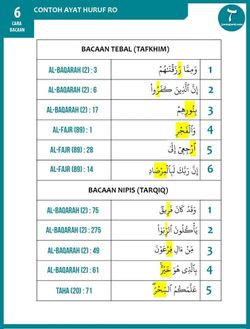 6
CARA
BACAAN
CONTOH AYAT HURUF RO
BACAAN TEBAL (TAFKHIM)
AL-BAQARAH (2) : 3 وَمِمَّا رَزَقْنَٰهُمْ 1
AL-BAQARAH (2) : 6 إِنَّ ٱلَّذِينَ كَفَرُوا۟ 2
AL-BAQARAH (2) : 17 بِنُورِهِمْ 3
AL-FAJR (89) : 1 وَٱلْفَجْرِ 4
AL-FAJR (89) : 28 ٱرْجِعِىٓ إِلَىٰ 5
AL-FAJR (89) : 14 إِنَّ رَبَّكَ لَبِٱلْمِرْصَادِ 6
BACAAN NIPIS (TARQIQ)
AL-BAQARAH (2) : 75 وَقَدْ كَانَ فَرِيقٌ 1
AL-BAQARAH (2) : 275 يَأْكُلُونَ ٱلرِّبَوٰا۟ 2
AL-BAQARAH (2) : 49 مِّنْ ءَالِ فِرْعَوْنَ 3
AL-BAQARAH (2) : 61 بِٱلَّذِى هُوَ خَيْرٌ 4
TAHA (20) : 71 عَلَّمَكُمُ ٱلسِّحْرَ 5